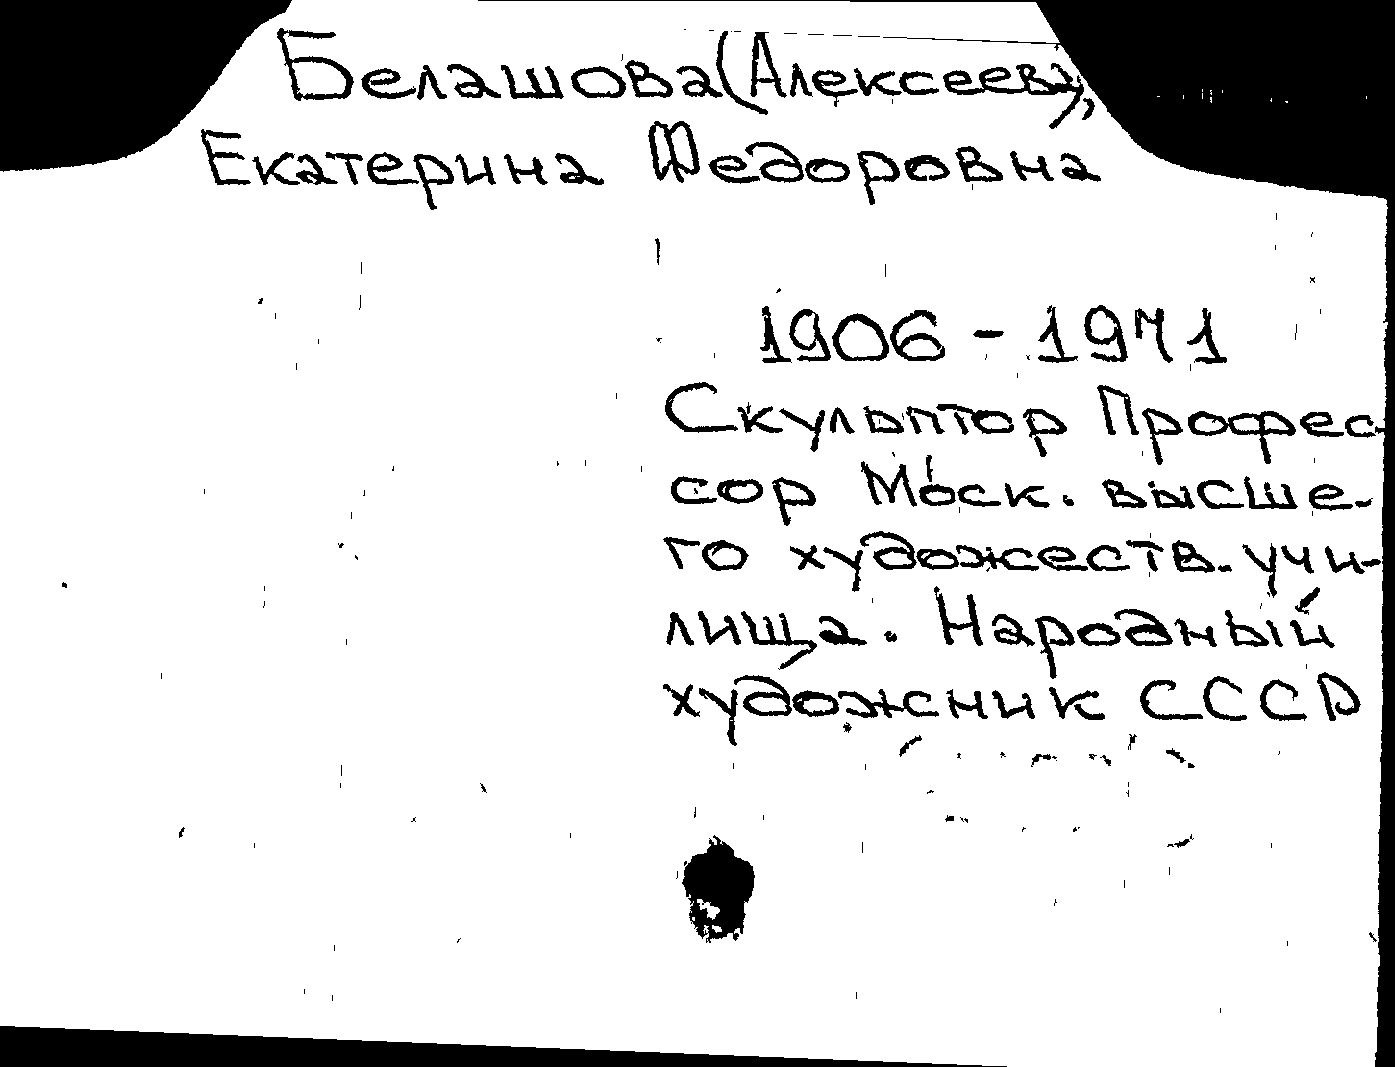 Белашова (Алексеева),
Екатерина Федоровна
1906 - 1971
Скульптор Профес-
сор Моск. высше-
го художеств. учи-
лища. Народный
художник СССР